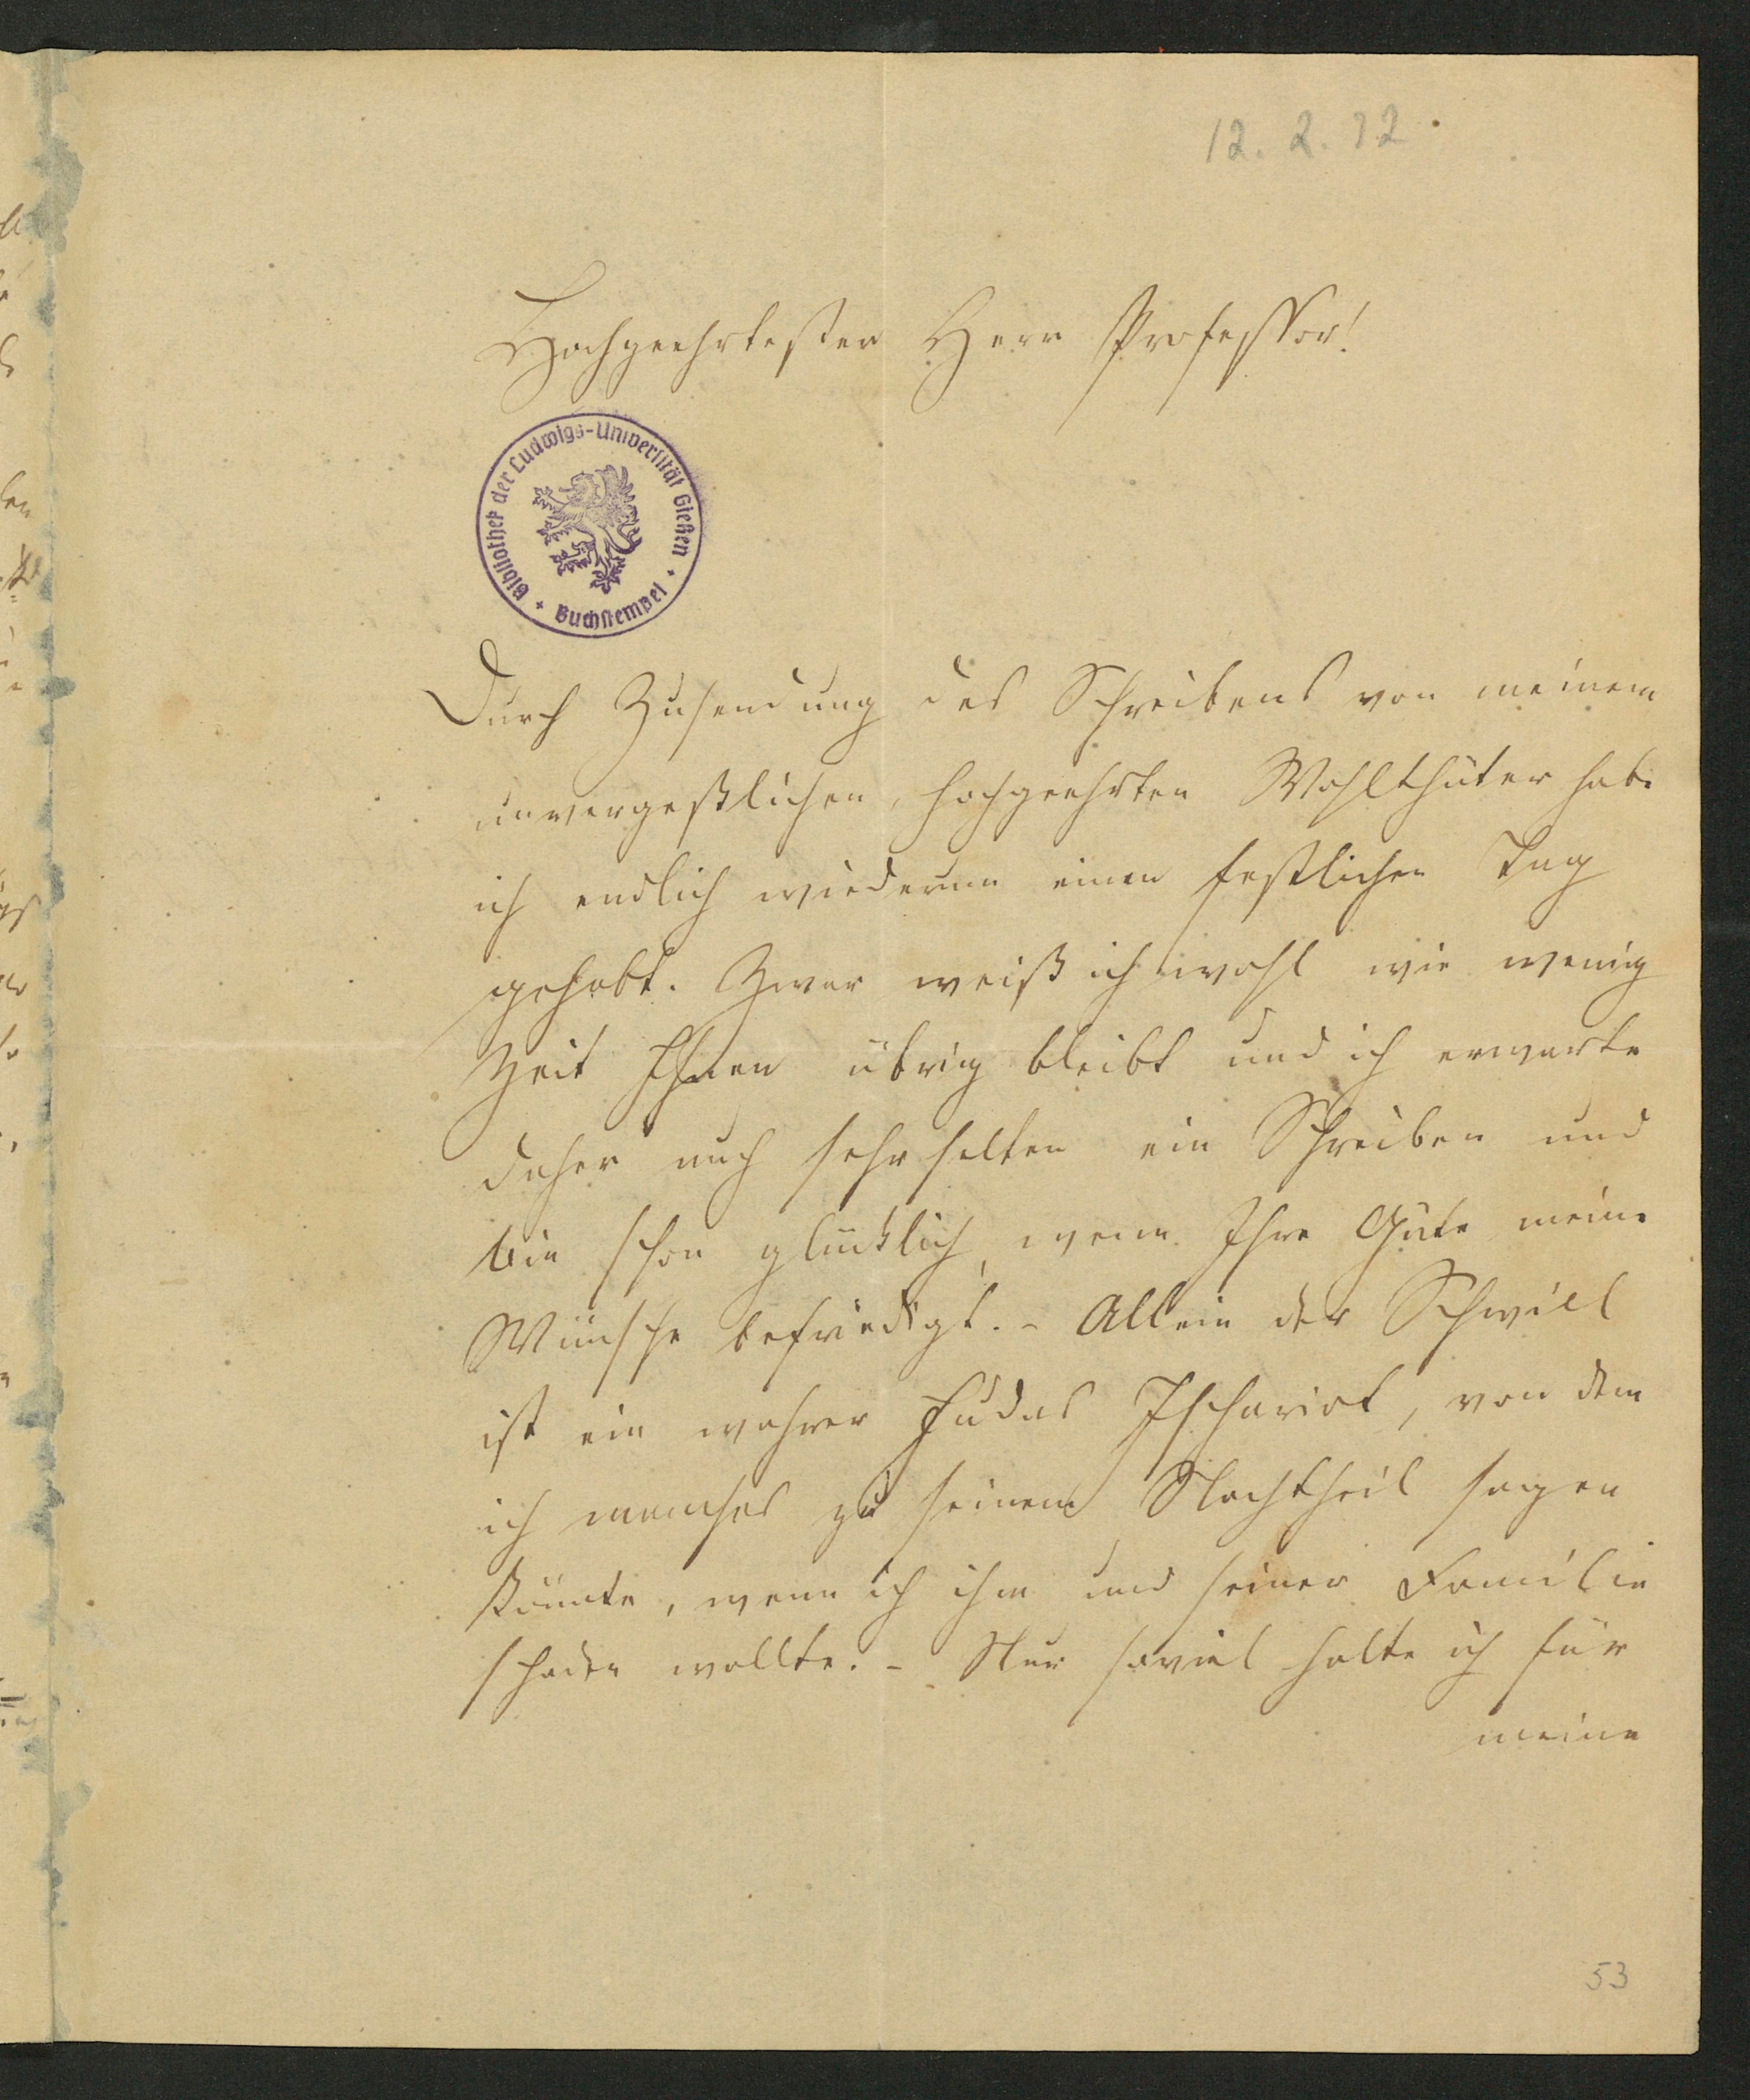 12. 2. 32
Hochgeehrtester Herr Professor!
Bibliothek der Ludwigs-Universität Gießen + Buchstempel +
Durch Zusendung des Schreibens von meinem
unvergeßlichen, hochgeehrten Wohlthäter habe
ich endlich wiederum einen festlichen Tag
gehabt. Zwar weiß ich wohl wie wenig
Zeit Ihnen übrig bleibt und ich erwarte
daher auch sehr selten ein Schreiben und
bin schon glücklich, wenn Ihre Güte meine
Wünsche befriedigt. - Allein der Schwill
ist ein wahrer Judas Ischariot, von dem
ich manches zu seinem Nachtheil sagen
könnte, wenn ich ihm und seiner Familie
schaden wollte. - Nur soviel halte ich für
meine
53